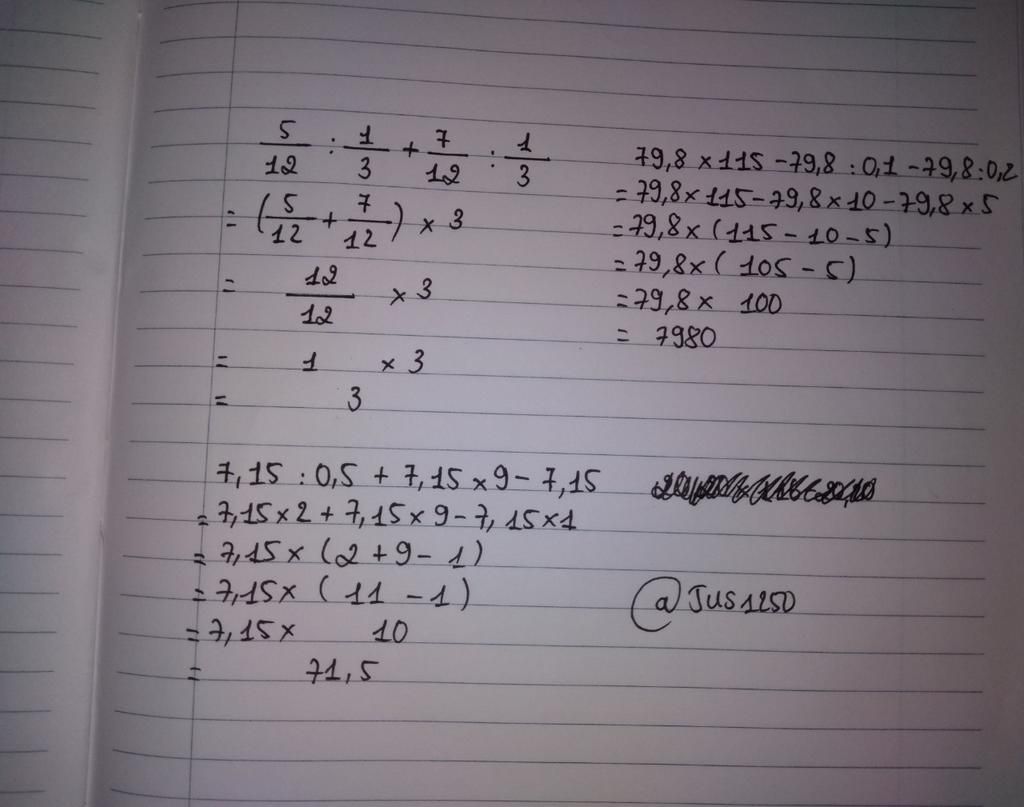 5/12 : 1/3 + 7/12 : 1/3
= (5/12 + 7/12) × 3
= 12/12 × 3
= 1 × 3
= 3
79,8 × 115 - 79,8 : 0,1 - 79,8 : 0,2
= 79,8 × 115 - 79,8 × 10 - 79,8 × 5
= 79,8 × (115 - 10 - 5)
= 79,8 × (105 - 5)
= 79,8 × 100
= 7980
7,15 : 0,5 + 7,15 × 9 - 7,15
= 7,15 × 2 + 7,15 × 9 - 7,15 × 1
= 7,15 × (2 + 9 - 1)
= 7,15 × (11 - 1)
= 7,15 × 10
= 71,5
@JUS1250